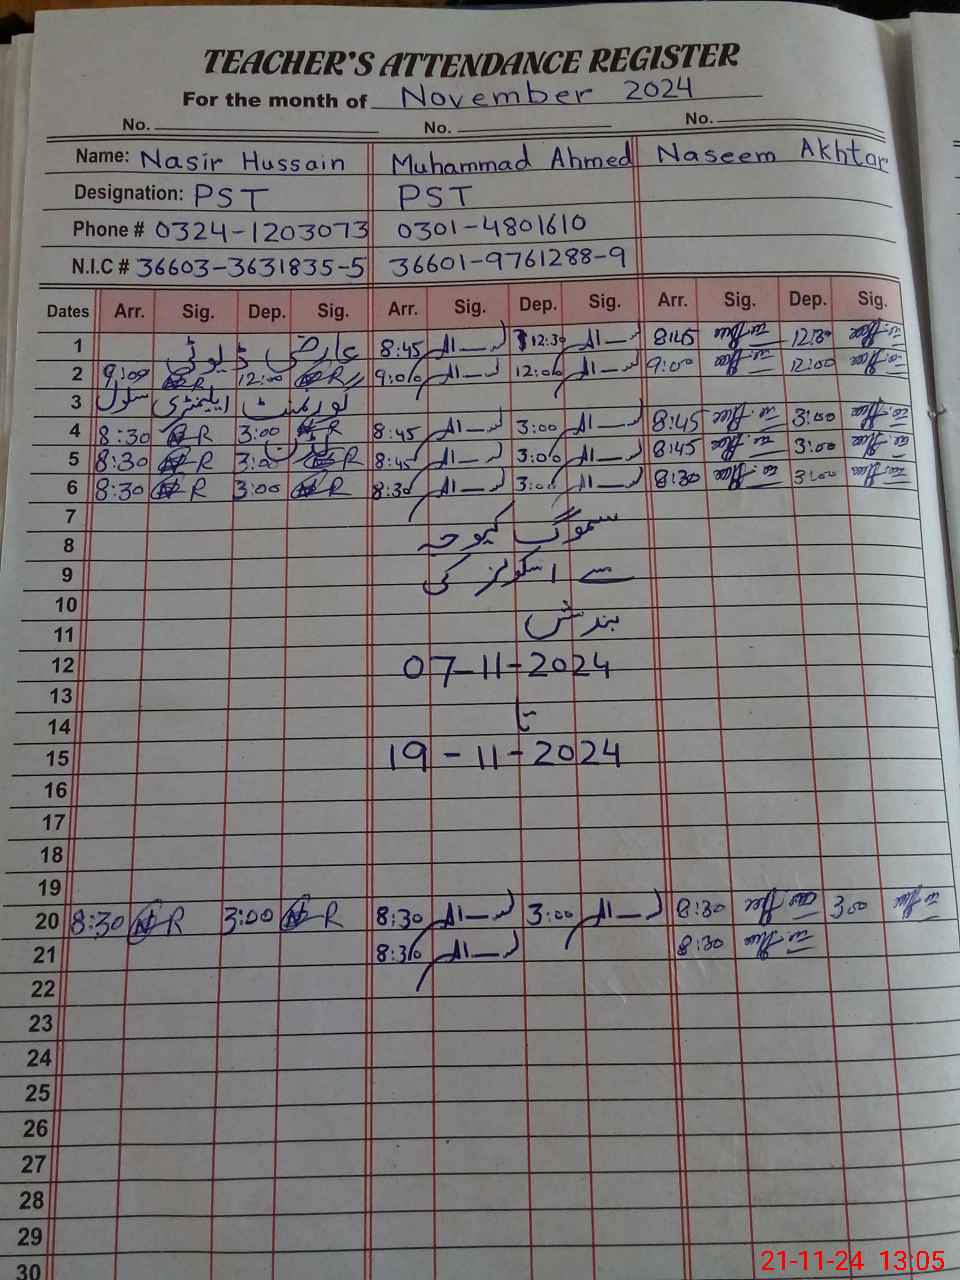 TEACHER'S ATTENDANCE REGISTER
For the month of November 2024
No. No. No.
Name: Nasir Hussain Muhammad Ahmed Naseem Akhtar
Designation: PST PST
Phone # 0324-1203073 0301-4801610
N.I.C # 36603-3631835-5 36601-9761288-9
Dates Arr. Sig. Dep. Sig. Arr. Sig. Dep. Sig. Arr. Sig. Dep. Sig.
1 عارضی ڈیوٹی 8:45 12:30 8:45 12:30
2 9:00 12:00 9:00 12:00 9:00 12:00
3 گورنمنٹ ایلیمنٹری سکول
4 8:30 3:00 8:45 3:00 8:45 3:00
5 8:30 3:00 8:45 3:00 8:45 3:00
6 8:30 3:00 8:30 3:00 8:30 3:00
7 سموگ کیوجہ
8
9 سے اسکولز کی
10
11 بندش
12 07-11-2024
13
14 تا
15 19-11-2024
16
17
18
19
20 8:30 3:00 8:30 3:00 8:30 3:00
21 8:30 8:30
22
23
24
25
26
27
28
29
30
21-11-24 13:05